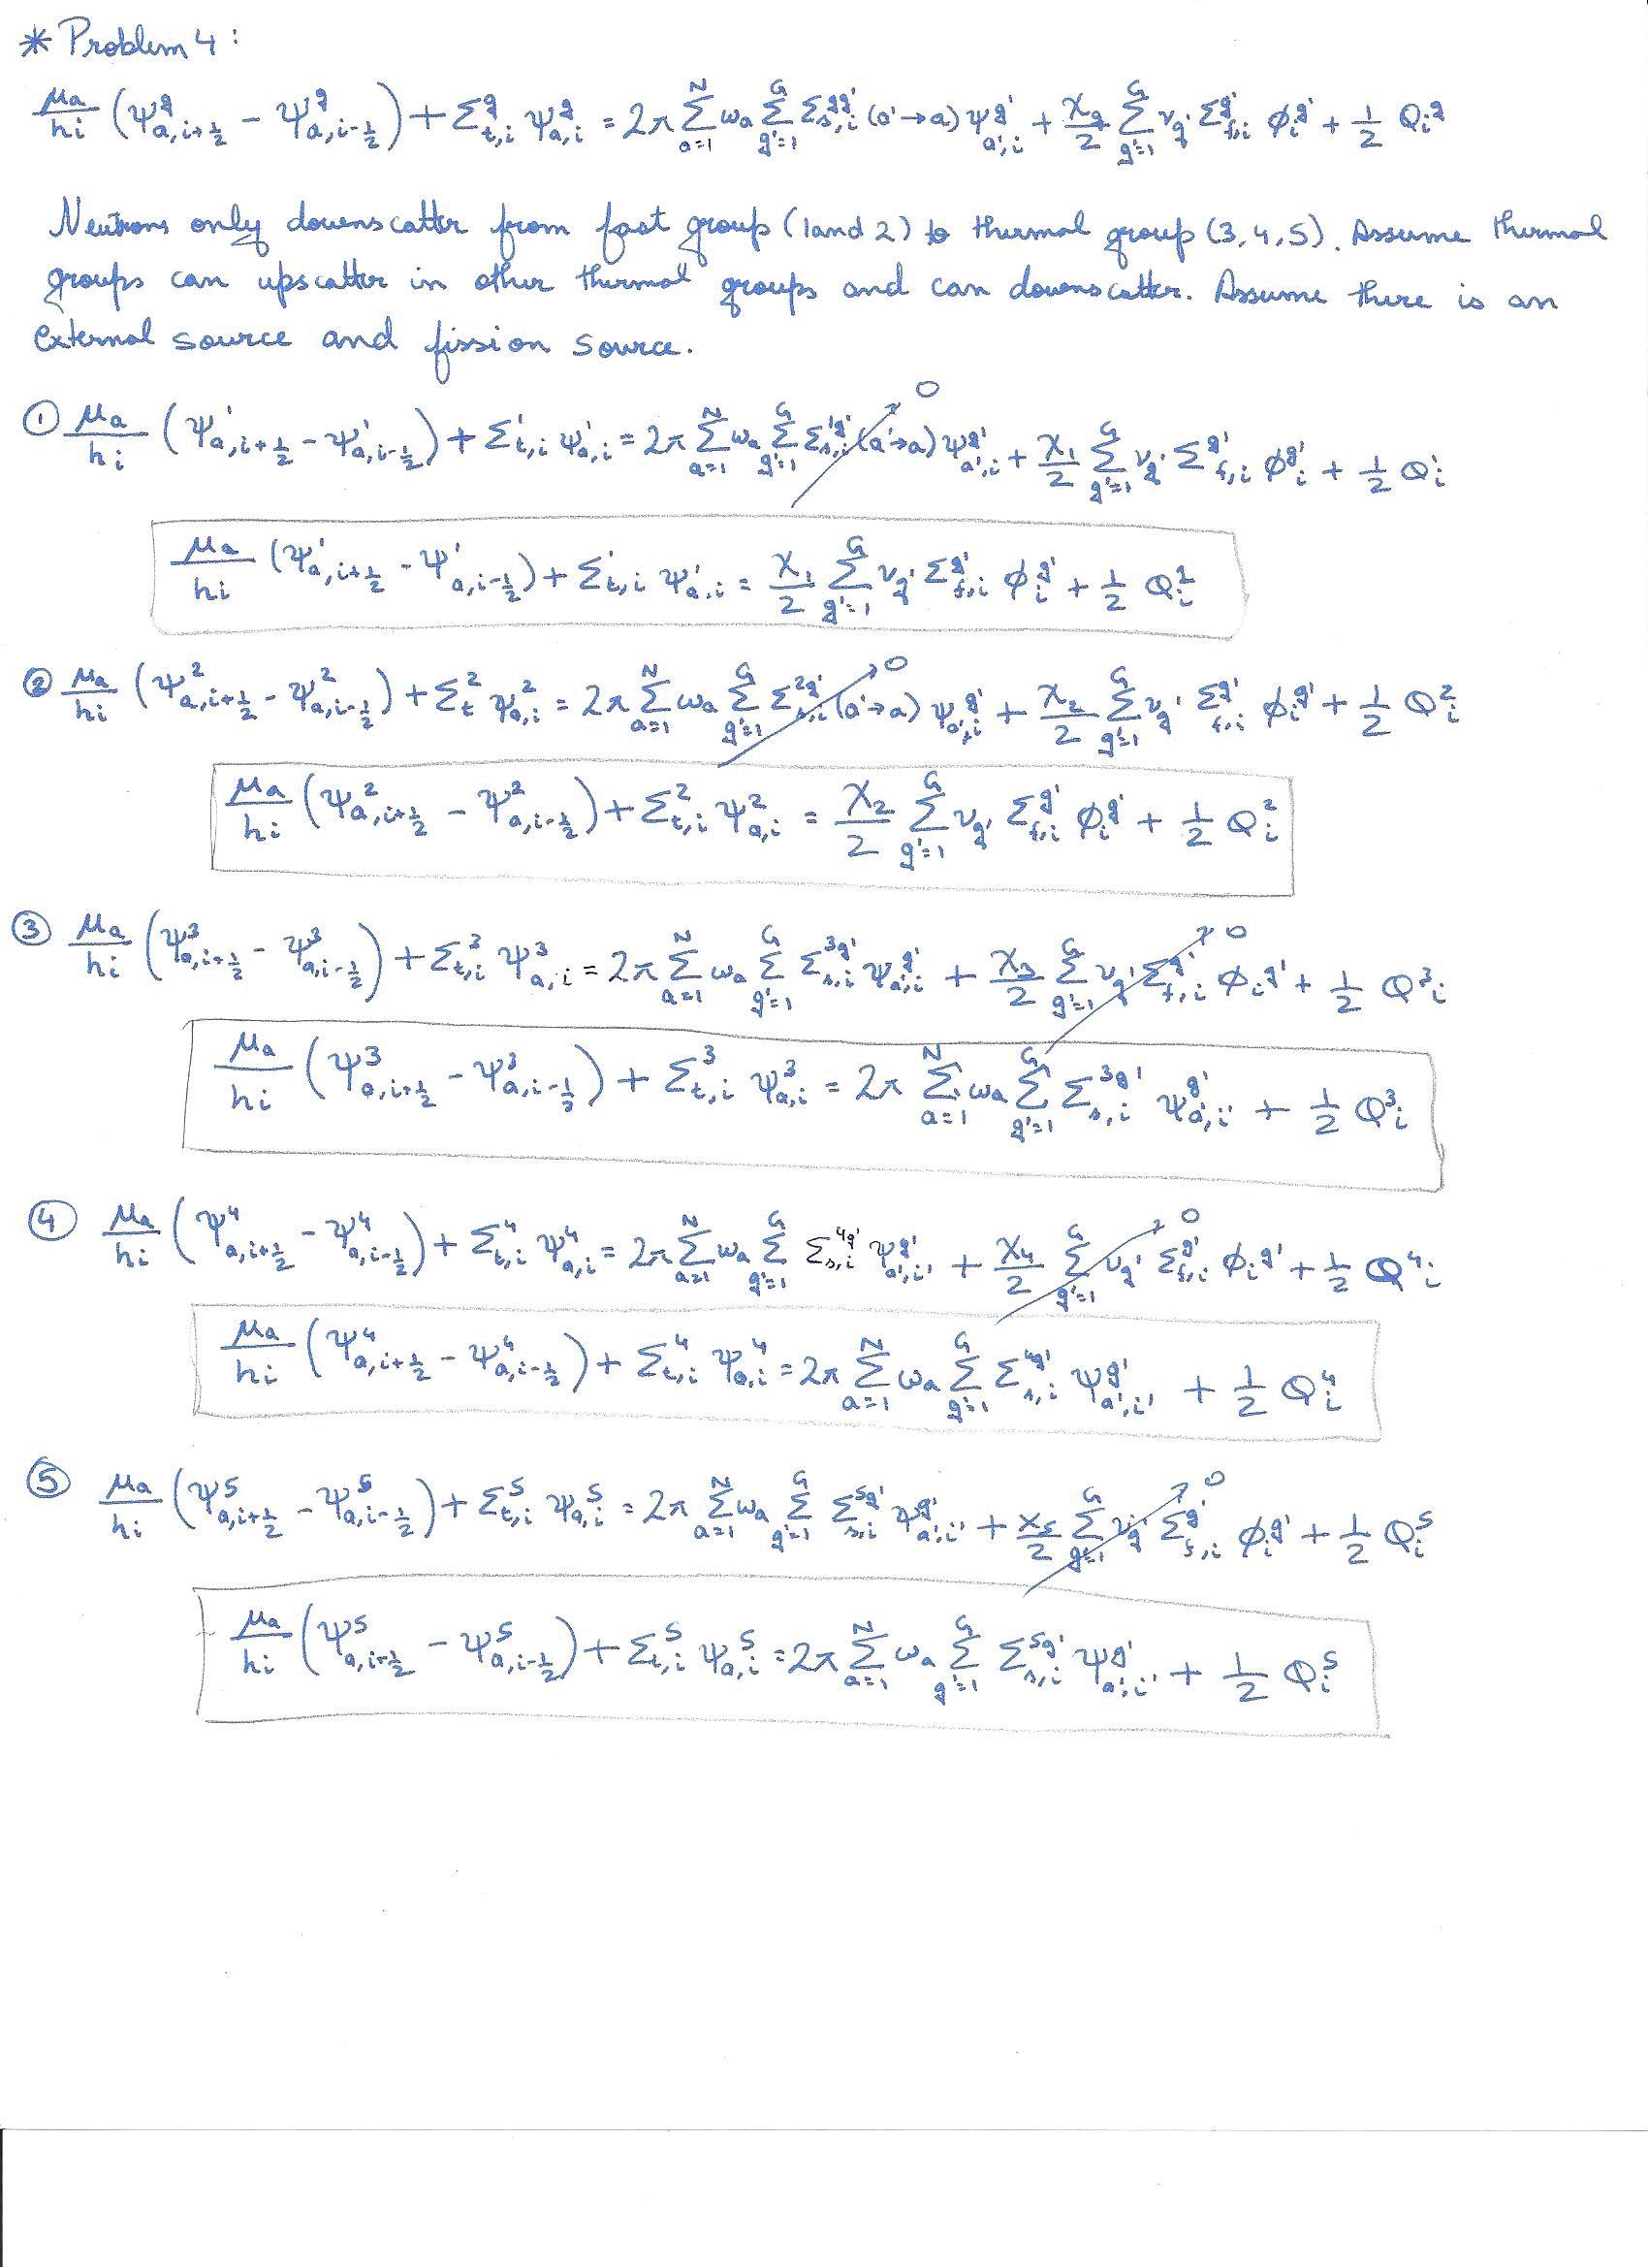 * Problem 4:
μa/hi (ψ^g_{a,i+1/2} - ψ^g_{a,i-1/2}) + Σ^g_{t,i} ψ^g_{a,i} = 2π Σ_{a=1}^{N} ωa Σ_{g'=1}^{G} Σ^{gg'}_{s,i} (a'→a) ψ^{g'}_{a',i} + χg/2 Σ_{g'=1}^{G} ν_{g'} Σ^{g'}_{f,i} φ_i^{g'} + 1/2 Q_i^g
Neutrons only downscatter from fast group (1 and 2) to thermal group (3,4,5). Assume thermal
groups can upscatter in other thermal groups and can downscatter. Assume there is an
external source and fission source.
① μa/hi (ψ^1_{a,i+1/2} - ψ^1_{a,i-1/2}) + Σ^1_{t,i} ψ^1_{a,i} = 2π Σ_{a=1}^{N} ωa Σ_{g'=1}^{G} Σ^{1g'}_{s,i} (a'→a) ψ^{g'}_{a',i} → 0 + χ1/2 Σ_{g'=1}^{G} ν_{g'} Σ^{g'}_{f,i} φ^{g'}_i + 1/2 Q^1_i
μa/hi (ψ^1_{a,i+1/2} - ψ^1_{a,i-1/2}) + Σ^1_{t,i} ψ^1_{a,i} = χ1/2 Σ_{g'=1}^{G} ν_{g'} Σ^{g'}_{f,i} φ_i^{g'} + 1/2 Q^1_i
② μa/hi (ψ^2_{a,i+1/2} - ψ^2_{a,i-1/2}) + Σ^2_t ψ^2_{a,i} = 2π Σ_{a=1}^{N} ωa Σ_{g'=1}^{G} Σ^{2g'}_{s,i} (a'→a) ψ^{g'}_{a',i} → 0 + χ2/2 Σ_{g'=1}^{G} ν_{g'} Σ^{g'}_{f,i} φ_i^{g'} + 1/2 Q^2_i
μa/hi (ψ^2_{a,i+1/2} - ψ^2_{a,i-1/2}) + Σ^2_{t,i} ψ^2_{a,i} = χ2/2 Σ_{g'=1}^{G} ν_{g'} Σ^{g'}_{f,i} φ_i^{g'} + 1/2 Q^2_i
③ μa/hi (ψ^3_{a,i+1/2} - ψ^3_{a,i-1/2}) + Σ^3_{t,i} ψ^3_{a,i} = 2π Σ_{a=1}^{N} ωa Σ_{g'=1}^{G} Σ^{3g'}_{s,i} ψ^{g'}_{a',i} + χ3/2 Σ_{g'=1}^{G} ν_{g'} Σ^{g'}_{f,i} φ_i^{g'} → 0 + 1/2 Q^3_i
μa/hi (ψ^3_{a,i+1/2} - ψ^3_{a,i-1/2}) + Σ^3_{t,i} ψ^3_{a,i} = 2π Σ_{a=1}^{N} ωa Σ_{g'=1}^{G} Σ^{3g'}_{s,i} ψ^{g'}_{a',i'} + 1/2 Q^3_i
④ μa/hi (ψ^4_{a,i+1/2} - ψ^4_{a,i-1/2}) + Σ^4_{t,i} ψ^4_{a,i} = 2π Σ_{a=1}^{N} ωa Σ_{g'=1}^{G} Σ^{4g'}_{s,i} ψ^{g'}_{a',i'} + χ4/2 Σ_{g'=1}^{G} ν_{g'} Σ^{g'}_{f,i} φ_i^{g'} → 0 + 1/2 Q^4_i
μa/hi (ψ^4_{a,i+1/2} - ψ^4_{a,i-1/2}) + Σ^4_{t,i} ψ^4_{a,i} = 2π Σ_{a=1}^{N} ωa Σ_{g'=1}^{G} Σ^{4g'}_{s,i} ψ^{g'}_{a',i'} + 1/2 Q^4_i
⑤ μa/hi (ψ^5_{a,i+1/2} - ψ^5_{a,i-1/2}) + Σ^5_{t,i} ψ^5_{a,i} = 2π Σ_{a=1}^{N} ωa Σ_{g'=1}^{G} Σ^{5g'}_{s,i} ψ^{g'}_{a',i'} + χ5/2 Σ_{g'=1}^{G} ν_{g'} Σ^{g'}_{f,i} φ_i^{g'} → 0 + 1/2 Q^5_i
μa/hi (ψ^5_{a,i+1/2} - ψ^5_{a,i-1/2}) + Σ^5_{t,i} ψ^5_{a,i} = 2π Σ_{a=1}^{N} ωa Σ_{g'=1}^{G} Σ^{5g'}_{s,i} ψ^{g'}_{a',i'} + 1/2 Q^5_i